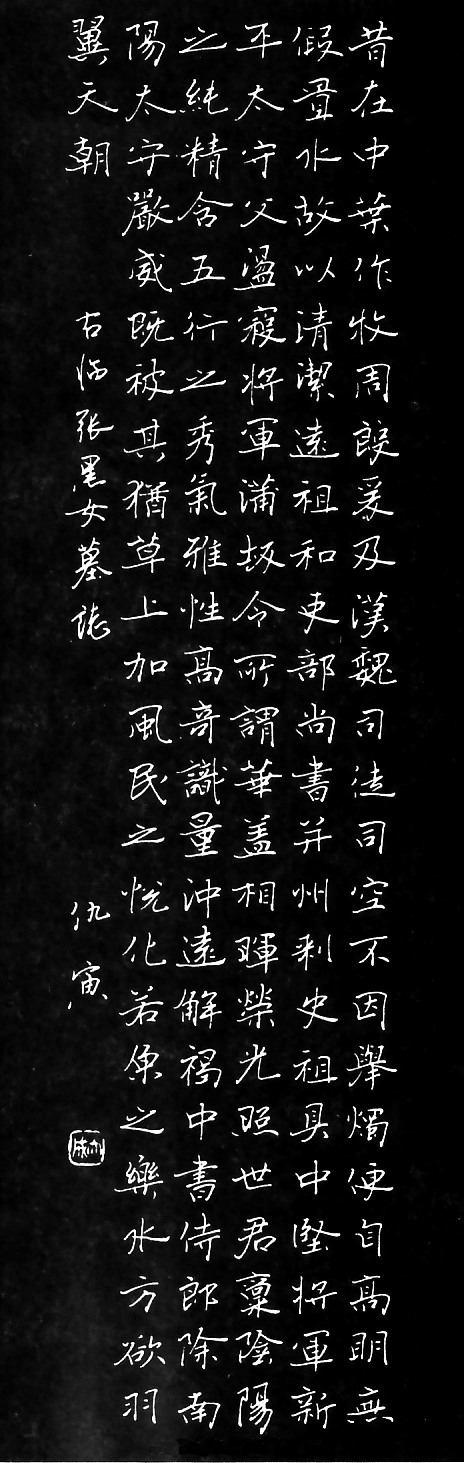 昔在中葉作牧周殷爰及漢魏司徒司空不因舉燭便自高明無
假置水故以清潔遠祖和吏部尚書并州刺史祖具中堅將軍新
平太守父盪寇將軍蒲坂令所謂華蓋相暉榮光照世君稟陰陽
之純精含五行之秀氣雅性高奇識量沖遠解褐中書侍郎除南
陽太守嚴威既被其猶草上加風民之悅化若魚之樂水方欲羽
翼天朝
右臨張黑女墓誌
仇寅